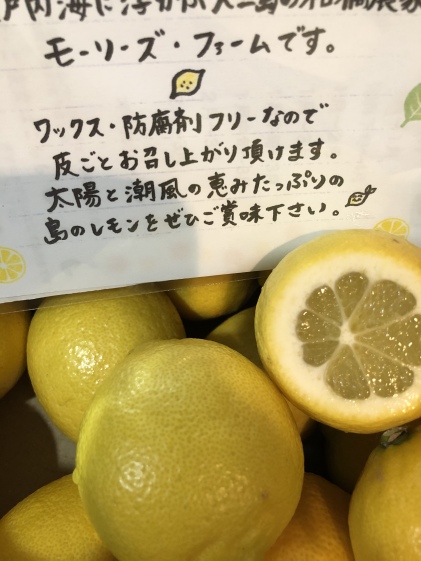 戸内海に浮かぶ大三島の柑橘農家
モーリーズ・ファームです。
ワックス・防腐剤フリーなので
皮ごとお召し上がり頂けます。
太陽と潮風の恵みたっぷりの
島のレモンをぜひご賞味下さい。